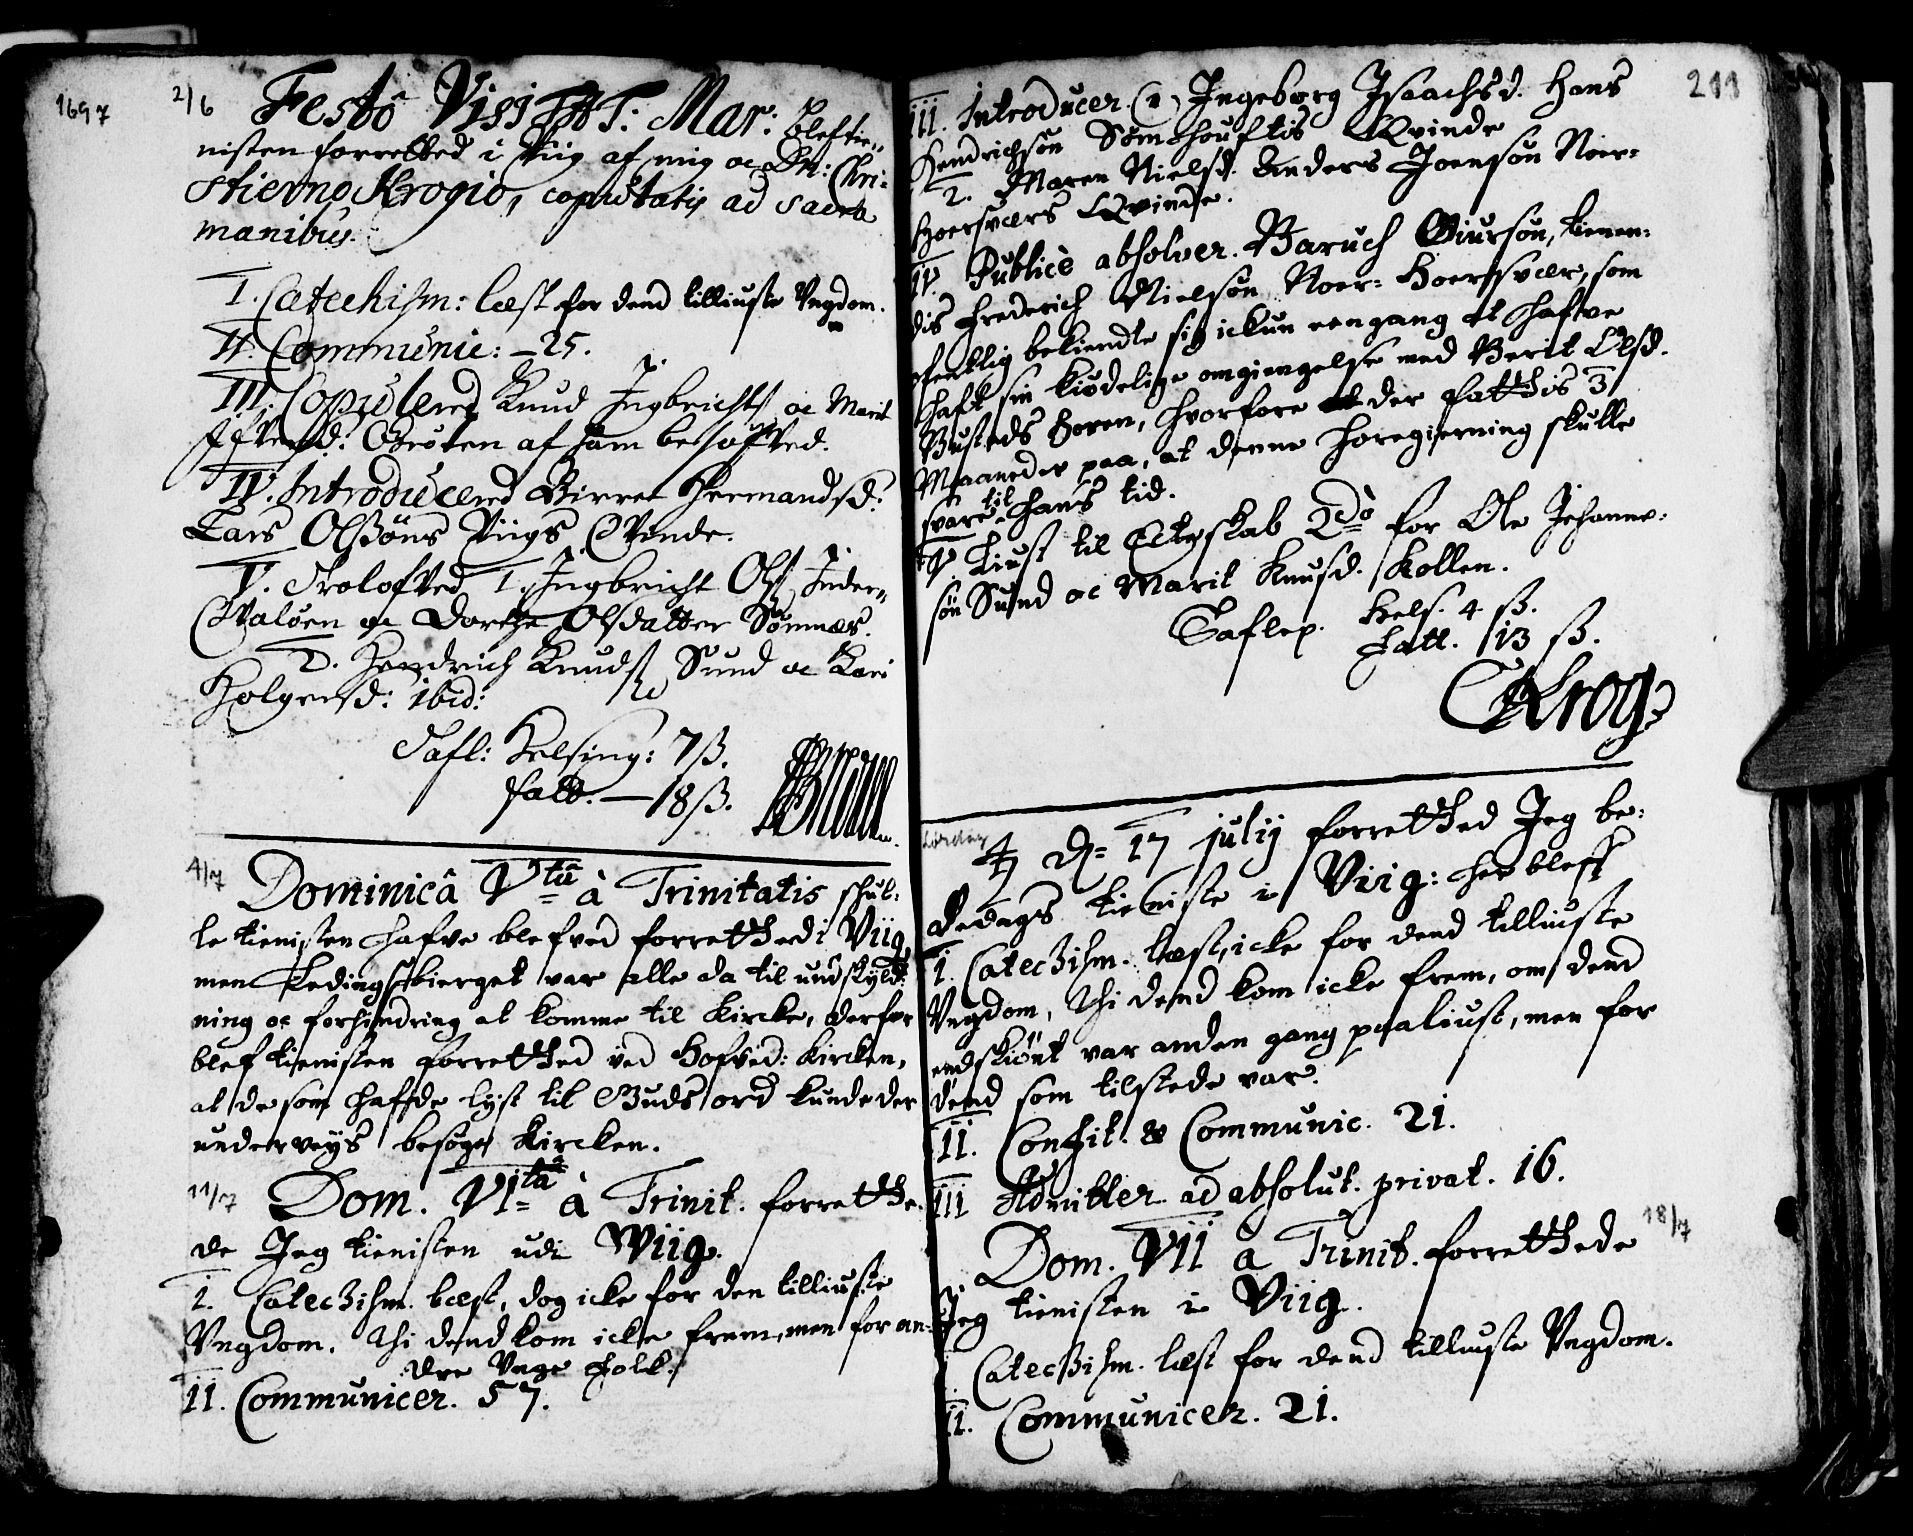 1697
2/6 Festô Visitat: Mar: Blef tie-
nisten forretted i Viig af mig oc Dn: Chri-
stierno Krogio, coputatis ad sacra
manibus.
I. Catechism: læst for dend tilliuste Ungdom.
II. Communic: - 25.
III. Copulered Knud Ingbrichts. oc Marit
Iffversd: Gröten af ham besofved.
IV. Introducered Birret Hermandsd:
Lars Olssöns Viigs Qvinde.
V. Trolofved 1. Ingbricht Ols. Inder-
Qvalöen oc Dorthe Olsdatter Sömnæs.
2. Hendrich Knuds. Sund oc Kari
Holgersd: ibid:
Tafl: Helsing: 7 ß.
Fatt. - 18 ß.
4/7 Dominicâ Vtâ à Trinitatis skul-
le tienisten hafve blefved forretthed i Viig,
men Ledingsbierget var alle da til undskyld-
ning oc forhindring at komme til Kircke, derfor
blef tienisten forretthed ved Hofved: Kircken,
at de som hafde lyst til Guds ord kunde der
underveys besøge Kircken.
11/7 Dom. VItâ à Trinit. forretthe-
de Jeg tienisten udi Wiig.
I. Catechism. læst, dog icke for den tilliuste
Ungdom. Thi dend kom icke frem, men for an-
dre Unge Folk.
II. Communicer. 57.
211
III. Introducer. (1) Ingeborg Isaachsd. Hans
Hendrichsøn Sömshouftis Qvinde
2. Maren Nielsd. Anders Joensøn Noer-
Hoersværs Qvinde.
IV. Publicè absolver. Baruch Giursøn, tienen-
dis Frederich Nielsøn Noer- Hoersvær, som
ofentlig bekiendte sig ickun een gang at hafve
haft sin kiødelige omgiengelse med Berit Olsd.
Busteds Horen, hvorfore der fatthis 3
Maaneder paa, at denne horegierning skulle
svare til hans tid.
V. Liust til Ecteskab 2do for Ole Johanne-
søn Sund oc Marit Knusd. Kollen.
Taflep. Hels. 4 ß.
Fatt. 13 ß.
CKrog
Lørdag
D. 17 julij forretthed Jeg be-
dedags tieniste i Viig: her bleff
I. Catechism. læst, icke for dend tilliuste
Ungdom, Thi dend kom icke frem, om dend
endskiönt var anden gang paaliust, men for
dend som tilstede var.
II. Confit. & Communic. 21.
III Admitter. ad absolut. privat. 16.
18/7
Dom. VII à Trinit. forretthede
Jeg tienisten i Viig.
I. Catechism. læst for dend tilliuste Ungdom.
II. Communicer. 21.